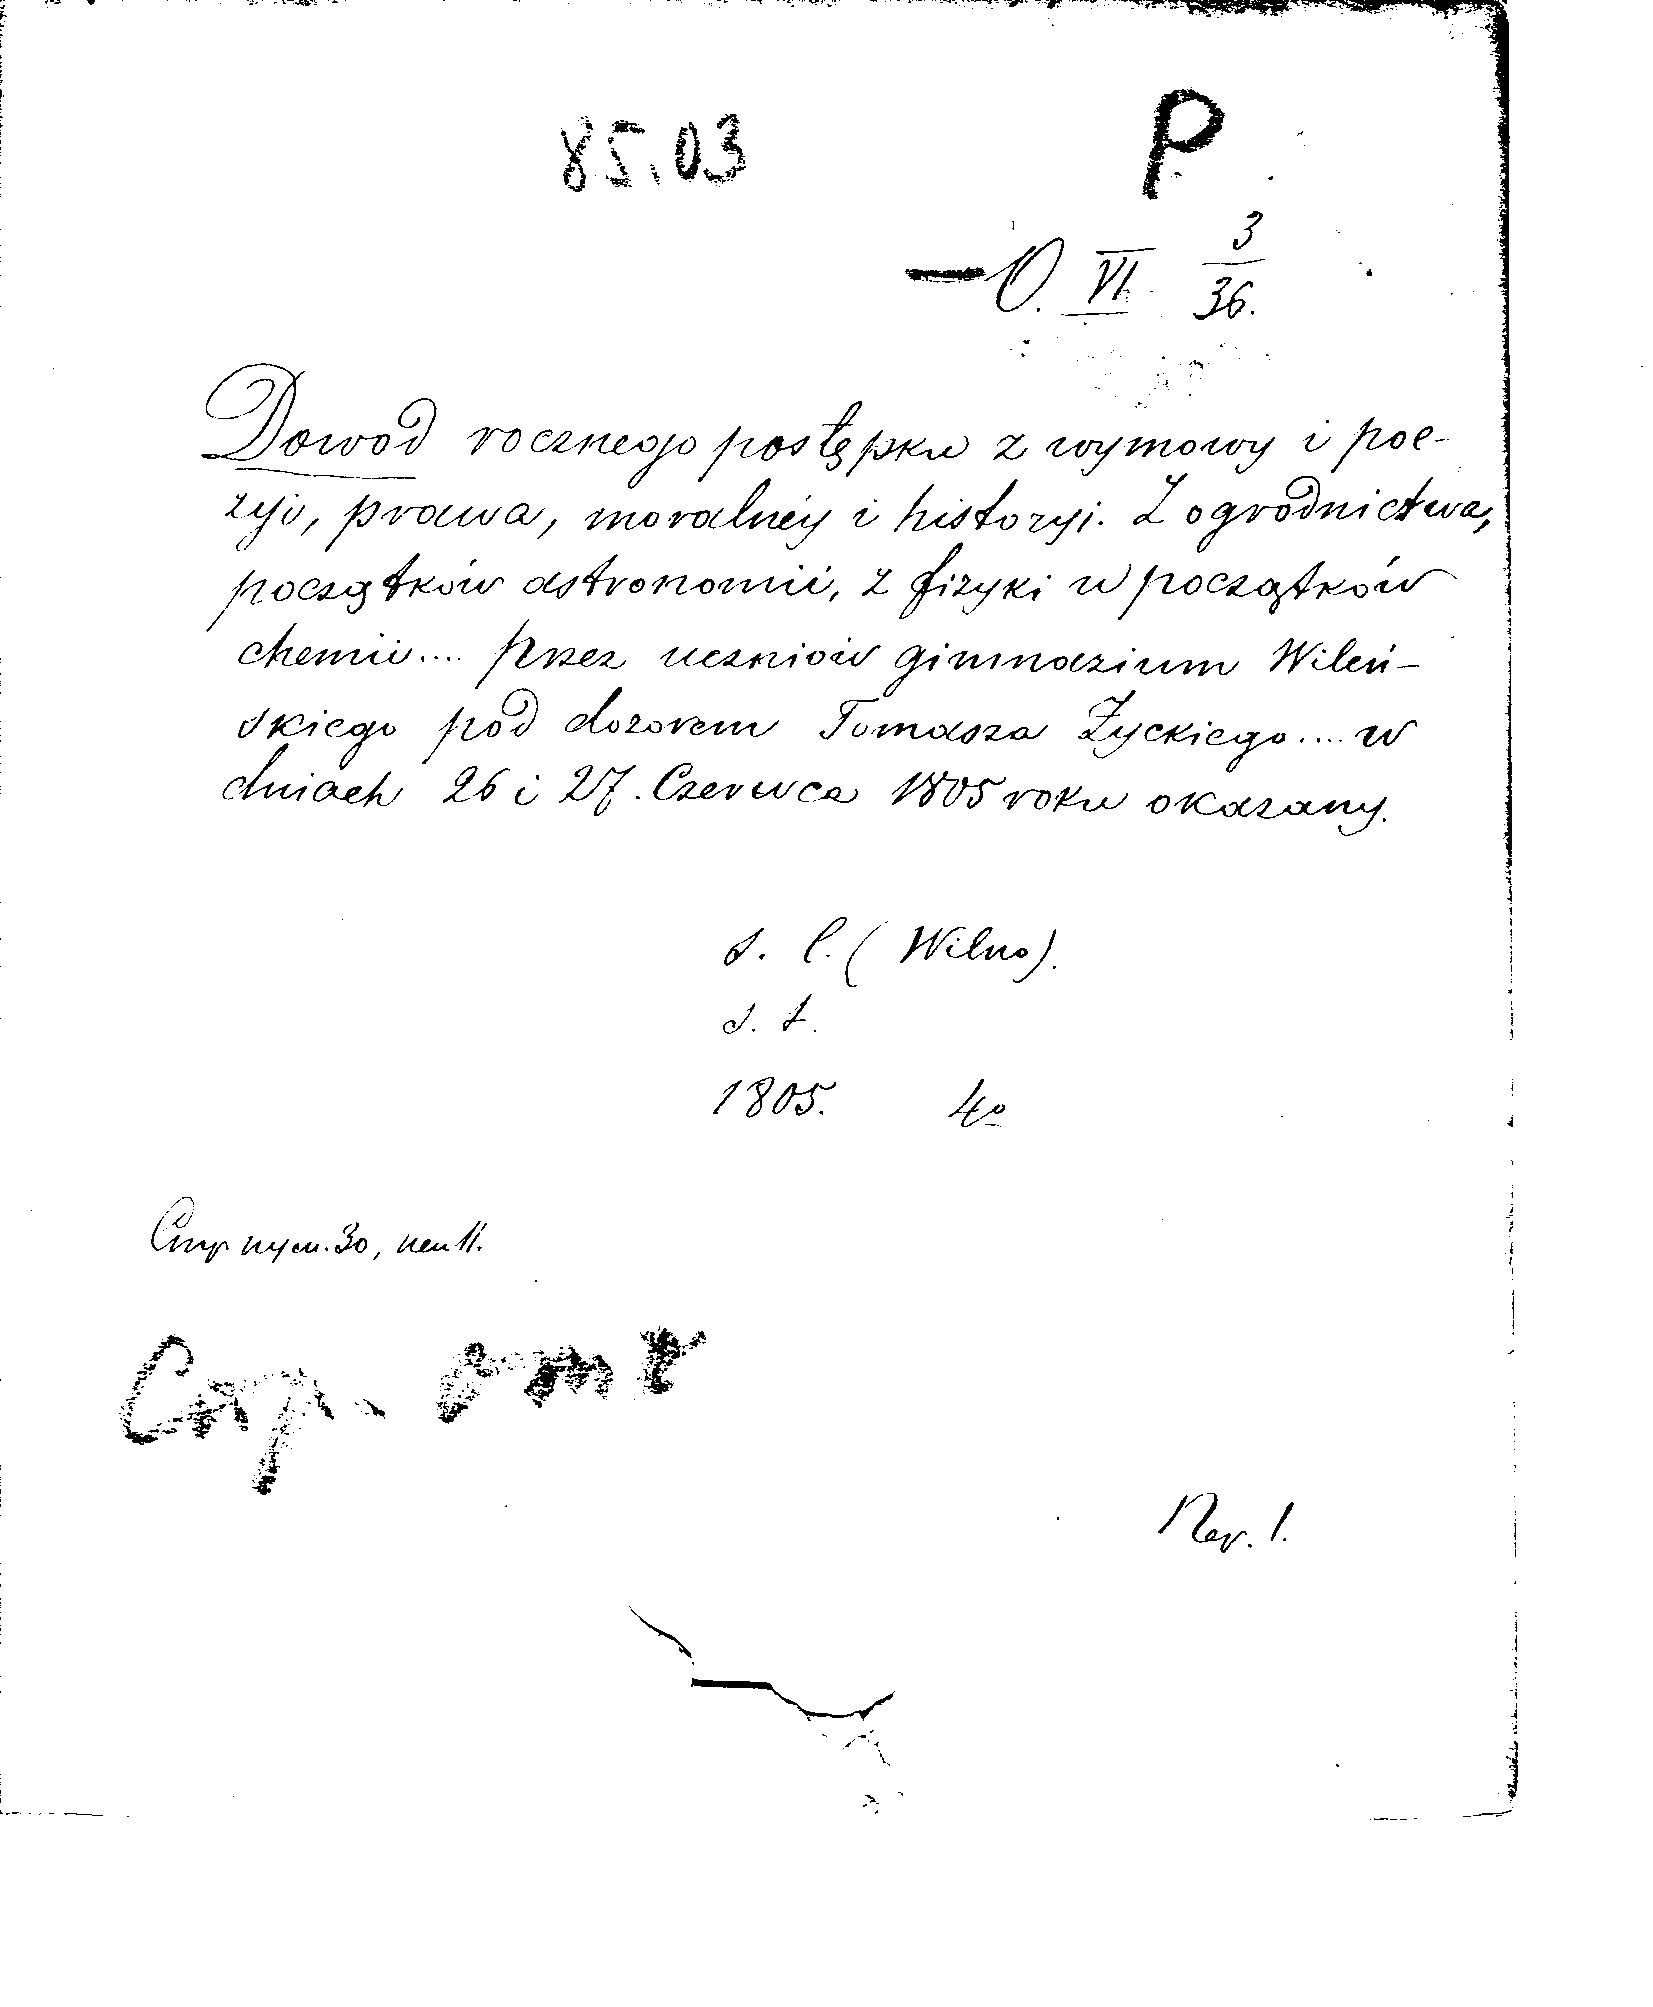 85.03
P
— O. VI 3/36.
Dowod rocznego postępku z wymowy i poe-
zyi, prawa, moralnéy i historyi. Z ogrodnictwa,
początków astronomii, z fizyki w początków
chemii.... przez uczniów gimnazium Wileń-
skiego pod dozorem Tomasza Życkiego.... w
dniach 26 i 27. Czerwca 1805 roku okazany.
s. l. (Wilno).
s. t.
1805. 4o
30, 11.
Пер. 1.